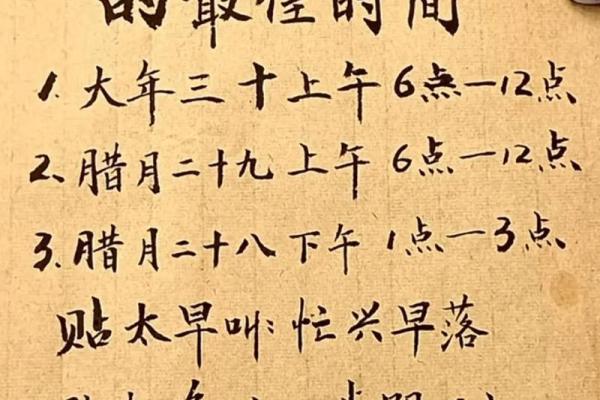 的最佳时间
1. 大年三十上午6点一12点
2、腊月二十九上午6点一12点
3.腊月二十八下午1点一3点
贴太早叫:忙兴早落